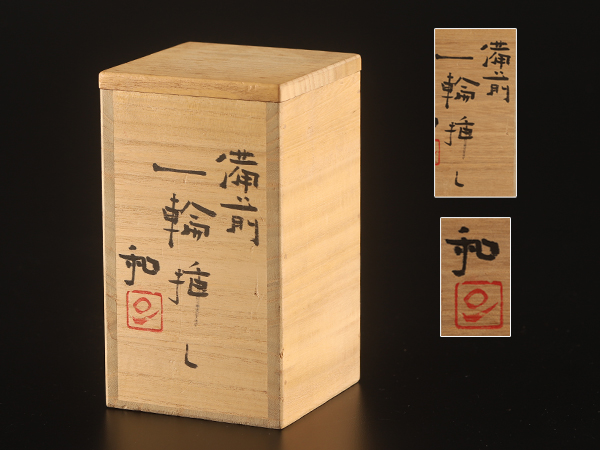 備前
一輪挿し
和
備前
一輪挿し
和